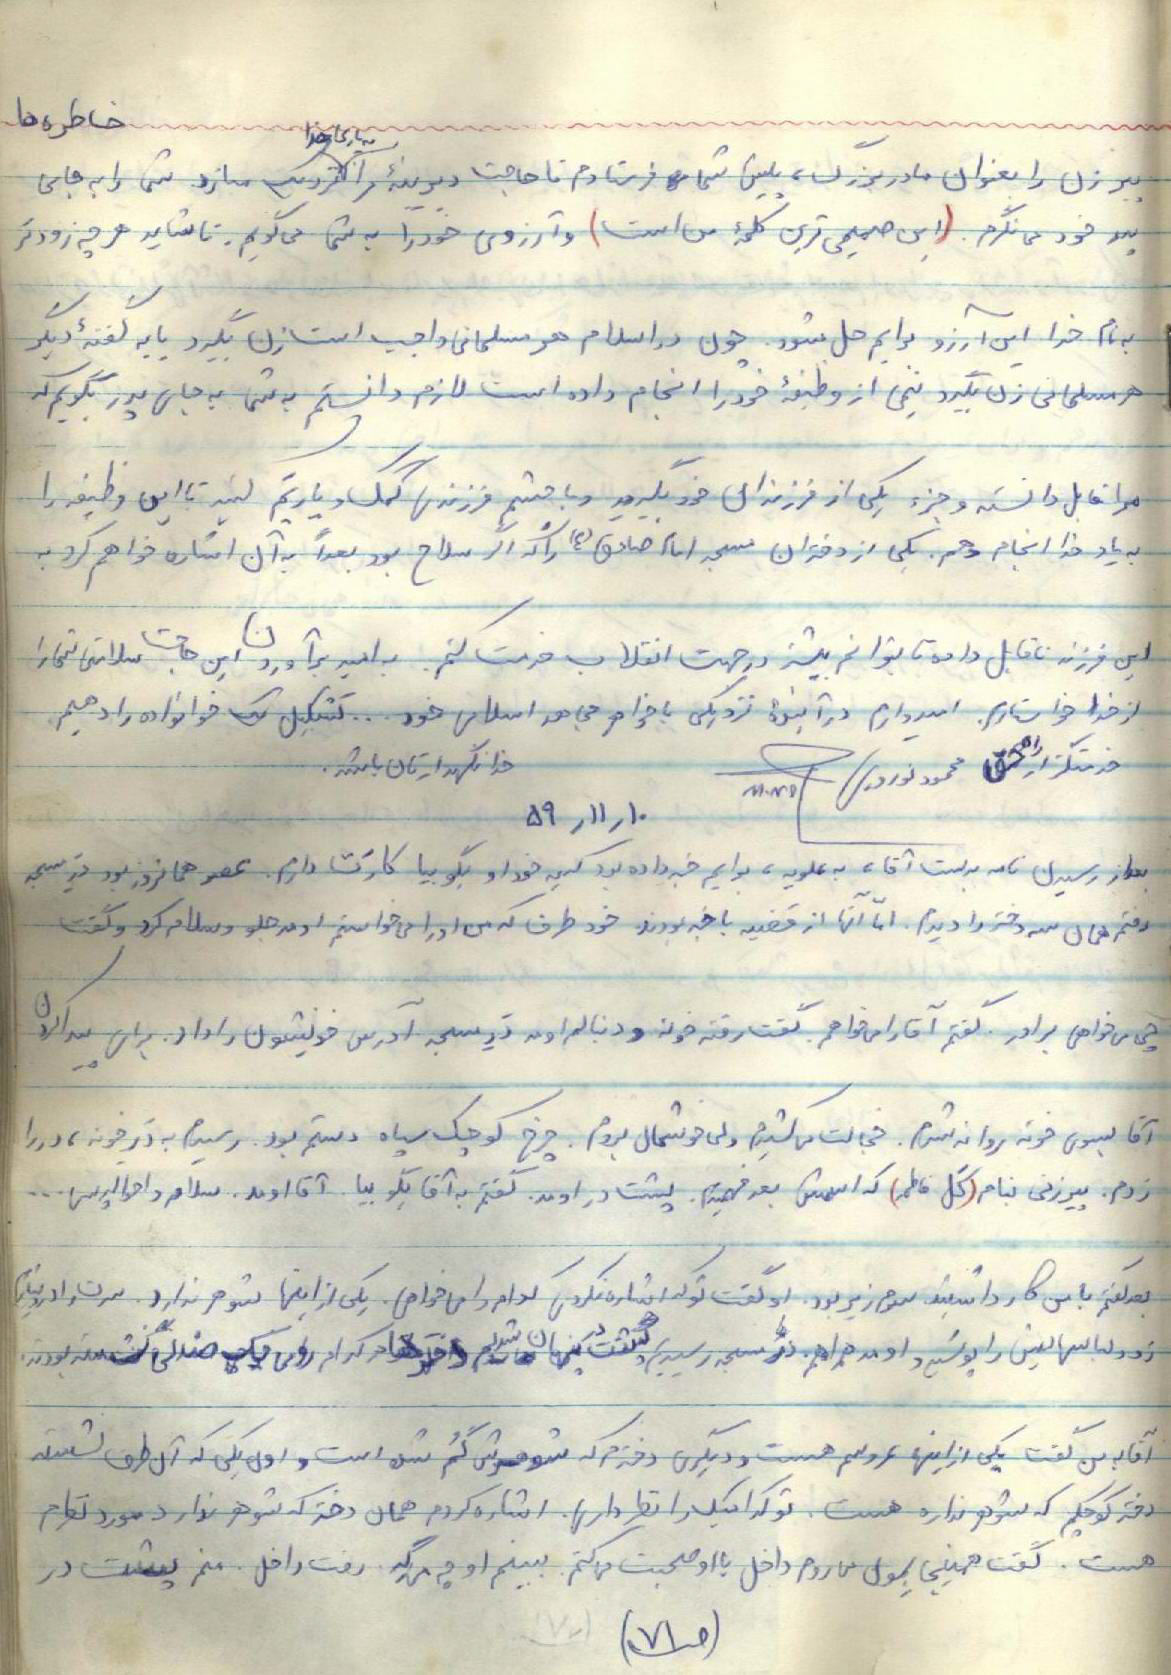 خاطره ها
به یاری خدا
پیر زن را بعنوان مادر بزرگ، پیش شما فرستادم تا حاجت دیرینهٔ مرا سازد. شما را به جای
پدر خود می نگرم. (این صمیمی ترین کلمهٔ من است) و آرزوی خود را به شما می گویم. تا شاید هر چه زودتر
به نام خدا این آرزو برایم حل بشود. چون در اسلام هر مسلمانی واجب است زن بگیرد یا به گفتهٔ دیگر
هر مسلمانی زن بگیرد نیمی از وظیفهٔ خود را انجام داده است لازم دانستم به شما به جای پدر بگویم که
مرا قابل دانسته و جزء یکی از فرزندان خود بگیرید و با چشم فرزندی کمک و یاریم کنید تا این وظیفه را
به یاد خدا انجام دهم. یکی از دختران مسجد امام صادق (ع) را که اگر سلاح بود بعداً به آن اشاره خواهم کرد به
این فرزند ناقابل داده تا بتوانم بیشتر در جهت انقلاب خدمت کنم. به امید برآوردن این حاجت سلامتی شما را
از خدا خواستارم. امیدوارم در آیندهٔ نزدیکی با خواهر مجاهد اسلامی خود ... تشکیل یک خوانواده را دهیم.
خدمتگزار راه حق محمود نوروزی خدا نگهدارتان باشد.
۱۰ر۱۱ر۵۹
بعد از رسیدن نامه بدست آقا، به علویه، برایم خبر داده بود که به خود او بگو بیا کارت دارم. عصر همانروز بود در مسجد
رفتم همان سه دختر را دیدم. امّا آنها از قضیه با خبر بودند خود طرف که من او را می خواستم اومد جلو و سلام کرد و گفت
چی می خواهی برادر. گفتم آقا را می خواهم. گفت رفته خونه و دنبالم اومد در مسجد آدرس خونشون را داد. برای پیدا کردن
آقا بسوی خونه روانه شدم. خجالت می کشیدم ولی خوشحال بودم. چرخ کوچک سپاه دستم بود. رسیدم به در خونه، در را
زدم. پیر زنی بنام (گل فاطمه) که اسمش بعد فهمیدم. پشت در اومد. گفتم به آقا بگو بیا. آقا اومد. سلام و احوالپرسی ...
بعد گفتم با من کار داشتید سرم زیر بود. او گفت تو که اشاره نکردی کدام را می خواهی. یکی از اینها شوهر ندارد.
زود لباسهایش را پوشید و اومد همراهم. در مسجد رسیدیم هر کدام روی یک صندلی نشسته بودند.
آقا به من گفت یکی از اینها عروسم هست و دیگری دخترم که شوهرش گم شده است و اول یکی که آن طرف نشسته
دختر کوچکم که شوهر نداره هست. تو کدامیک را نظر داری. اشاره کردم همان دختر که شوهر ندارد مورد نظرم
هست. گفت همینجا می روم داخل با او صحبت می کنم ببینم او چی میگه. رفت داخل. منم پشت در
(ص ۷۱)